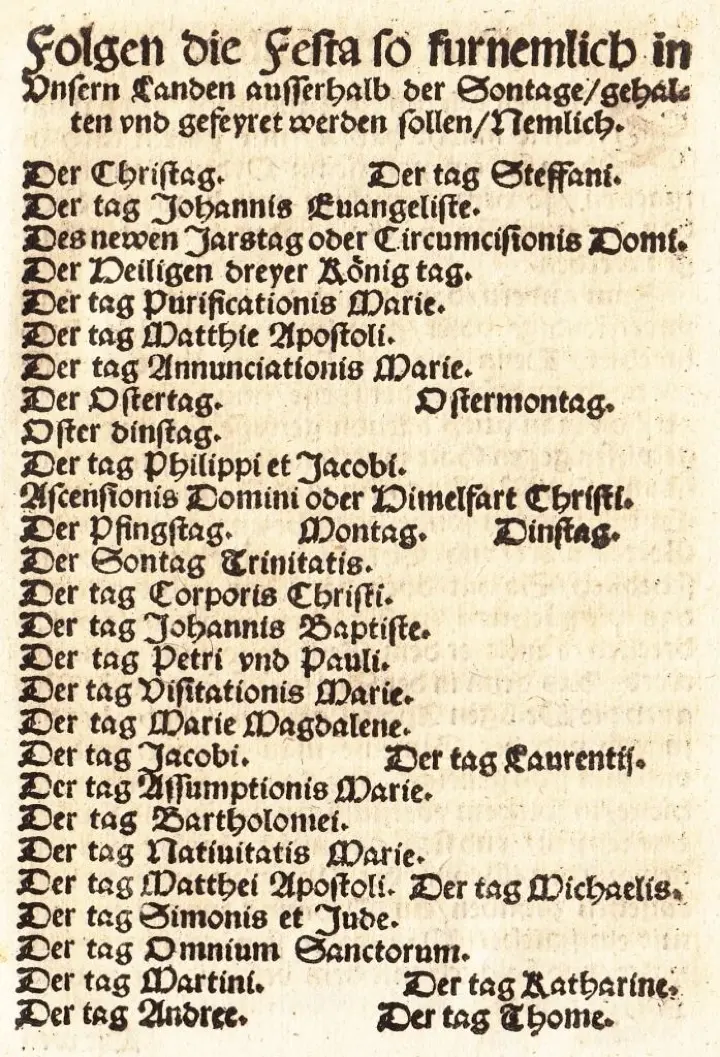 Folgen die Festa so furnemlich in
Vnsern Landen ausserhalb der Sontage/gehal-
ten vnd gefeyret werden sollen/Nemlich.
Der Christag. Der tag Steffani.
Der tag Johannis Euangeliste.
Des newen Jarstag oder Circumcisionis Domi.
Der Heiligen dreyer König tag.
Der tag Purificationis Marie.
Der tag Matthie Apostoli.
Der tag Annunciationis Marie.
Der Ostertag. Ostermontag.
Oster dinstag.
Der tag Philippi et Jacobi.
Ascensionis Domini oder Himelfart Christi.
Der Pfingstag. Montag. Dinstag.
Der Sontag Trinitatis.
Der tag Corporis Christi.
Der tag Johannis Baptiste.
Der tag Petri vnd Pauli.
Der tag Visitationis Marie.
Der tag Marie Magdalene.
Der tag Jacobi. Der tag Laurentij.
Der tag Assumptionis Marie.
Der tag Bartholomei.
Der tag Natiuitatis Marie.
Der tag Matthei Apostoli. Der tag Michaelis.
Der tag Simonis et Jude.
Der tag Omnium Sanctorum.
Der tag Martini. Der tag Katharine.
Der tag Andree. Der tag Thome.